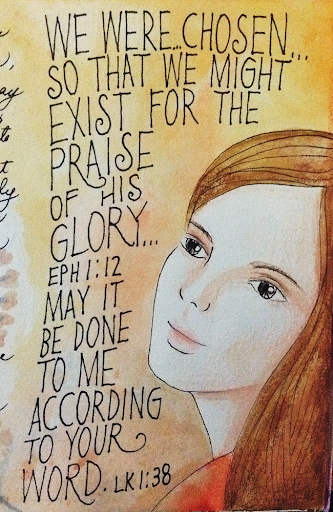 WE WERE...CHOSEN...
SO THAT WE MIGHT
EXIST FOR THE
PRAISE
OF HIS
GLORY...
EPH 1:12
MAY IT
BE DONE
TO ME
ACCORDING
TO YOUR
WORD. LK 1:38